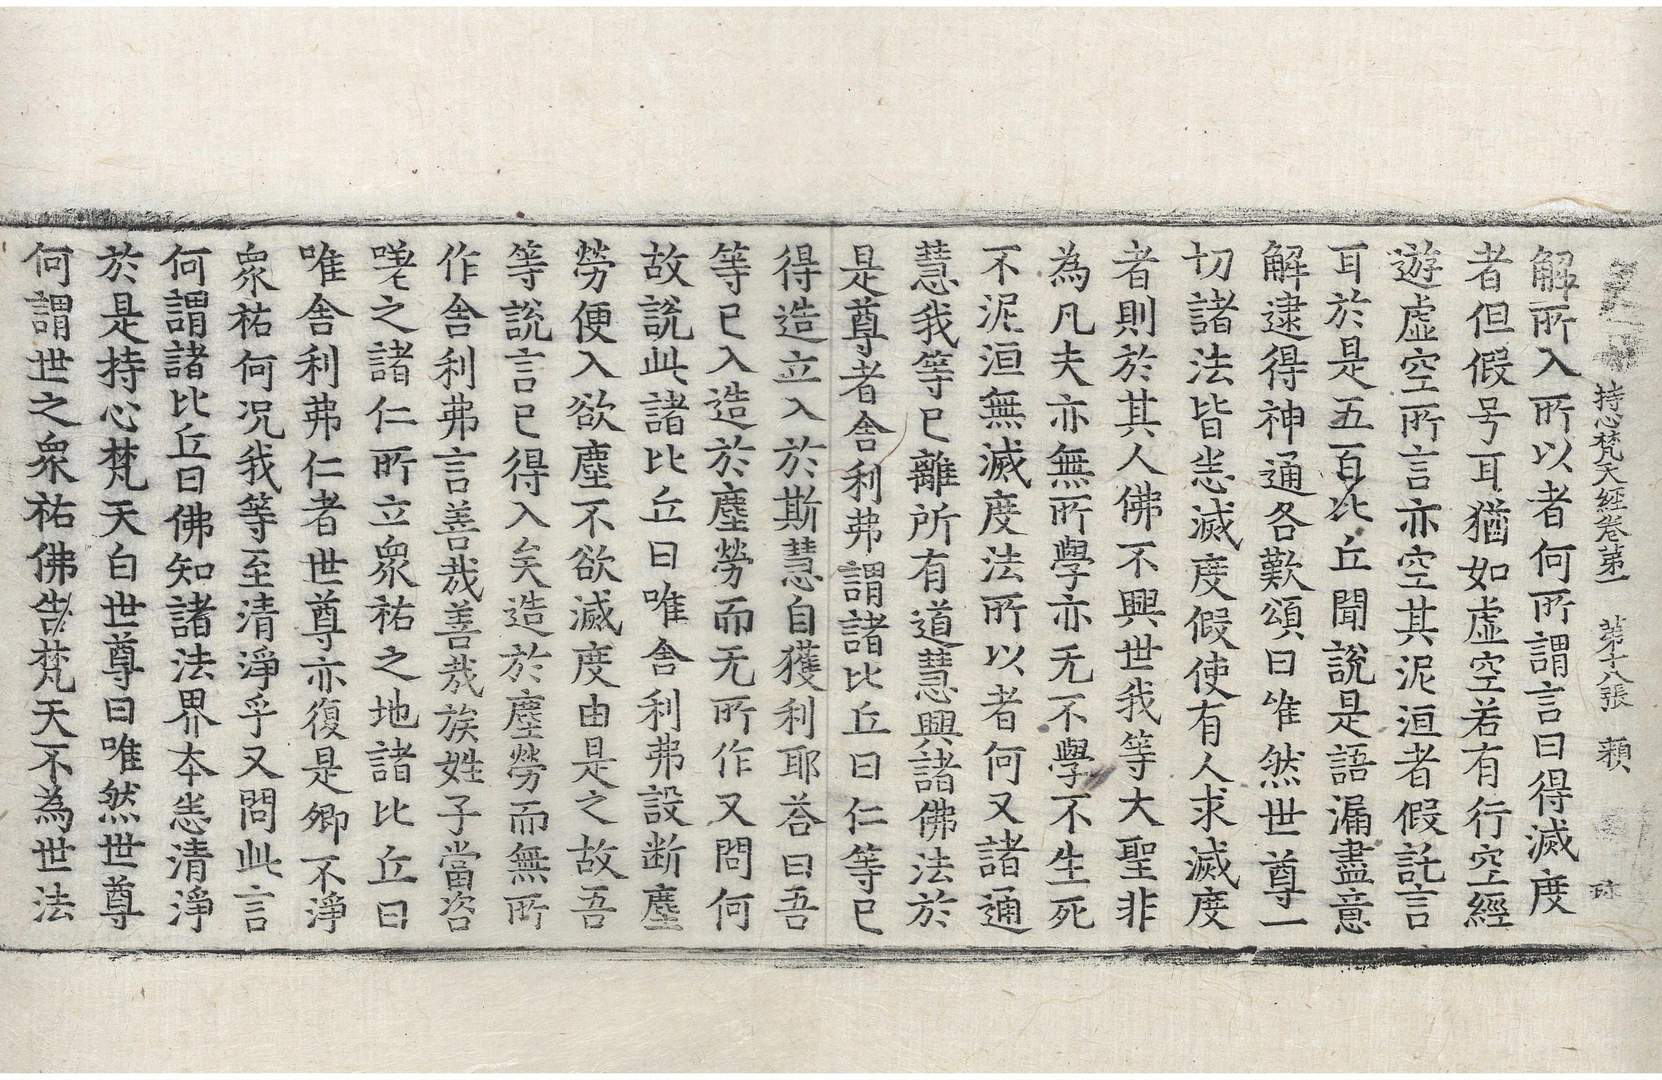 持心梵天經卷第一 第十八張 頪
解所入所以者何所謂言曰得滅度
者但假号耳猶如虛空若有行空經
遊虛空所言亦空其泥洹者假託言
耳於是五百比丘聞說是語漏盡意
解逮得神通各歎頌曰唯然世尊一
切諸法皆悉滅度假使有人求滅度
者則於其人佛不興世我等大聖非
為凡夫亦無所學亦无不學不生死
不泥洹無滅度法所以者何又諸通
慧我等已離所有道慧興諸佛法於
是尊者舍利弗謂諸比丘曰仁等已
得造立入於斯慧自獲利耶荅曰吾
等已入造於塵勞而无所作又問何
故說此諸比丘曰唯舍利弗設断塵
勞便入欲塵不欲滅度由是之故吾
等說言已得入矣造於塵勞而無所
作舍利弗言善哉善哉族姓子當咨
嗟之諸仁所立眾祐之地諸比丘曰
唯舍利弗仁者世尊亦復是卿不淨
眾祐何況我等至清淨乎又問此言
何謂諸比丘曰佛知諸法界本悉清淨
於是持心梵天白世尊曰唯然世尊
何謂世之眾祐佛告梵天不為世法